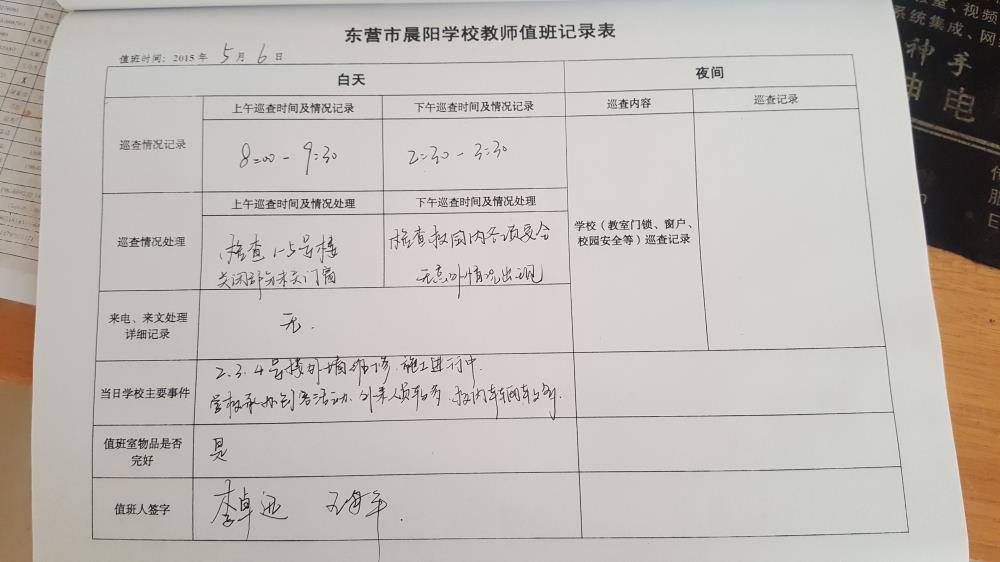 东营市晨阳学校教师值班记录表
值班时间：2015年 5月 6日
白天 夜间
上午巡查时间及情况记录 下午巡查时间及情况记录 巡查内容 巡查记录
巡查情况记录 8:00-9:30 2:30-3:30
上午巡查时间及情况处理 下午巡查时间及情况处理
巡查情况处理
检查1-5号楼 检查校园内各项安全
关闭部分未关门窗 无意外情况出现
学校（教室门锁、窗户、
校园安全等）巡查记录
来电、来文处理
详细记录
无.
当日学校主要事件
2.3.4号楼外墙维修.施工进行中.
学校承办创客活动.外来人员较多.校内车辆较多.
值班室物品是否
完好
是
值班人签字 李卓迅
、视频
系统集成、网
神手
电